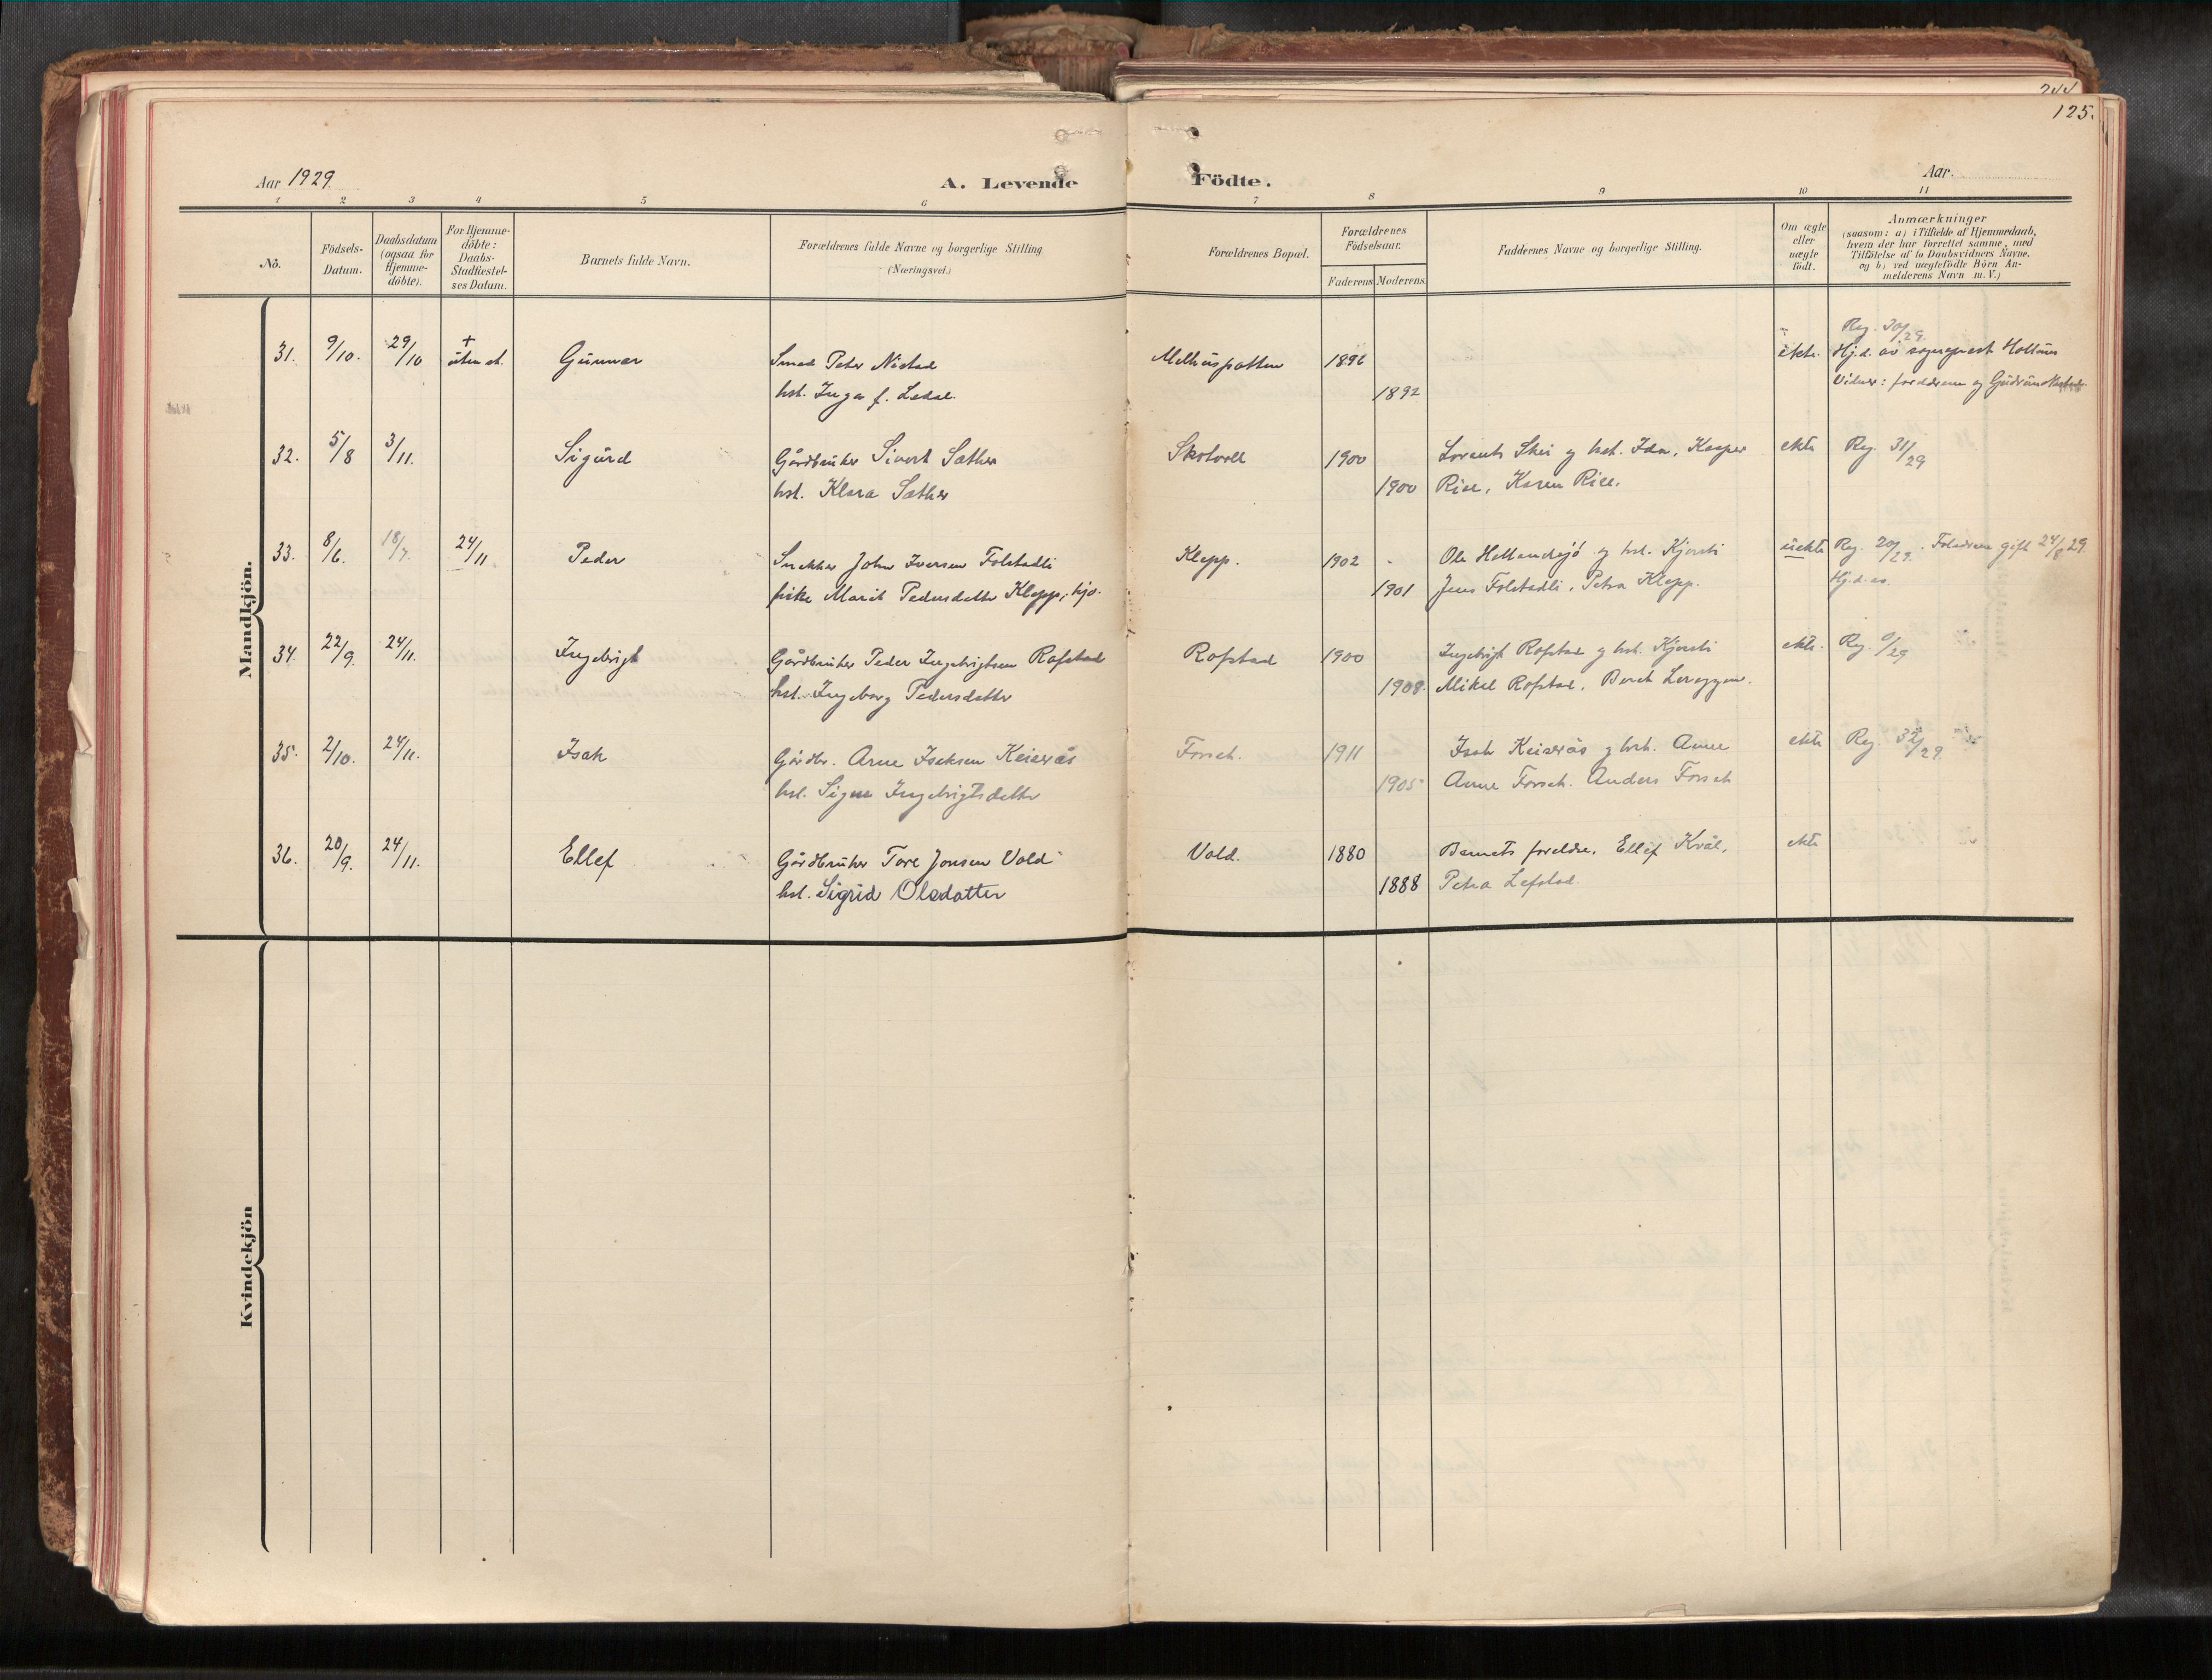 125.
Aar 1929
A. Levende Födte.
Aar
1 2 3 4 5 6 7 8 9 10 11
No.
Födsels-Datum.
Daabsdatum (ogsaa for Hjemme-döbte).
For Hjemme-döbte: Daabs-Stadfæstel-ses Datum.
Barnets fulde Navn.
Forældrenes fulde Navne og borgerlige Stilling (Næringsvei.)
Forældrenes Bopæl.
Forældrenes Födselsaar.
Faderens Moderens
Faddernes Navne og borgerlige Stilling.
Om ægte eller uægte födt.
Anmærkninger
(saasom: a) i Tilfælde af Hjemmedaab,
hvem der har forrettet samme, med
Tilföielse af to Daabsvidners Navne.
og b) ved uægtefödte Börn An-
melderens Navn m. V.)
Mandkjön.
Reg. 30/29.
31. 9/10. 29/10 + uten st. Gunnar Smed Peter Nistad Melhuspatten 1896 ekte. Hj.d. av sogneprest
hst. Inga f. 1892 Vidner: foreldrene og Gudrun
32. 5/8 3/11. Sigurd Gårdbruker Sivert Sæther Skotvoll 1900 Lorents Skei og hst. Ida, Kasper ekte Reg. 31/29
hst. Klara Sæther 1900 Rise, Karen Rise.
33. 8/6. 18/7. 24/11 Peder Snekker John Iversen Folstadli Klepp. 1902 Ole og hst. Kjersti uekte Reg. 20/29. gift 24/8 29.
pike Marit Pedersdatter Klepp, hjo. 1901 Jens Folstadli, Petra Klepp. Hj.d. av.
34. 22/9. 24/11. Ingebrigt Gårdbruker Peder Ingebrigtsen Rofstad Rofstad 1900 Ingebrigt Rofstad og hst. Kjersti ekte. Reg. /29
hst. Ingeborg Pedersdatter 1908. Mikal Rofstad, Berit
35. 2/10. 24/11. Isak Gårdbr. Arne Isaksen Keiserås Forseth. 1911 Isak Keiserås og hst. Anne ekte Reg. 32/29.
hst. Signe Ingebrigtsdatter 1905 Arne Forseth. Anders Forseth
36. 20/9. 24/11. Ellef Gårdbruker Tore Jonsen Vold Vold. 1880 Barnets foreldre. Ellef Kvål, ekte
hst. Sigrid Olsdatter 1888 Petra Lefstad.
Kvindekjön